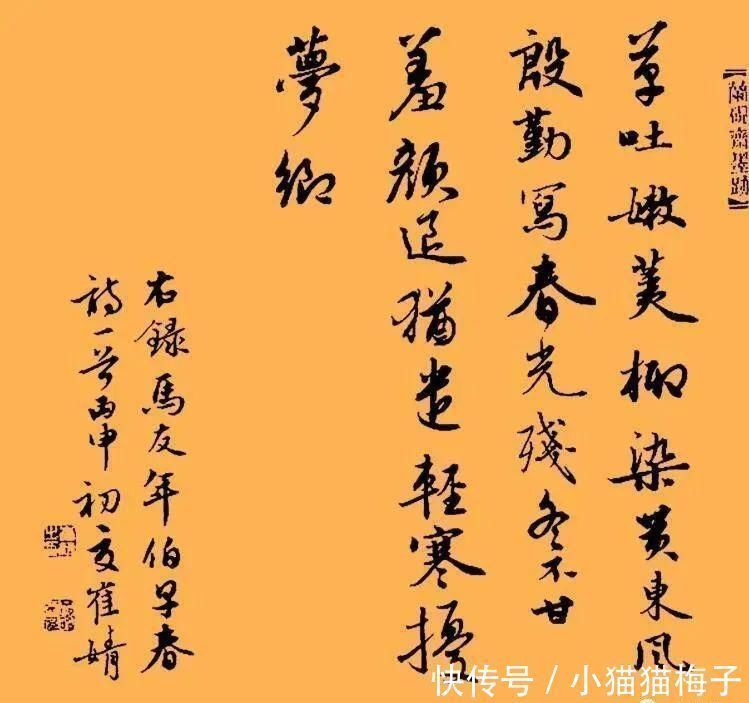 【蘭硯齋墨跡】
草吐嫩荑柳染黃東風
殷勤寫春光殘冬不甘
羞顏退猶遣輕寒擾
夢鄉
右錄馬友年伯早春
詩一首丙申初夏崔婧
快传号 / 小猫猫梅子